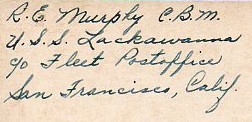 R. E. Murphy C.B.M.
U.S.S. Lackawanna
c/o Fleet Postoffice
San Francisco, Calif.